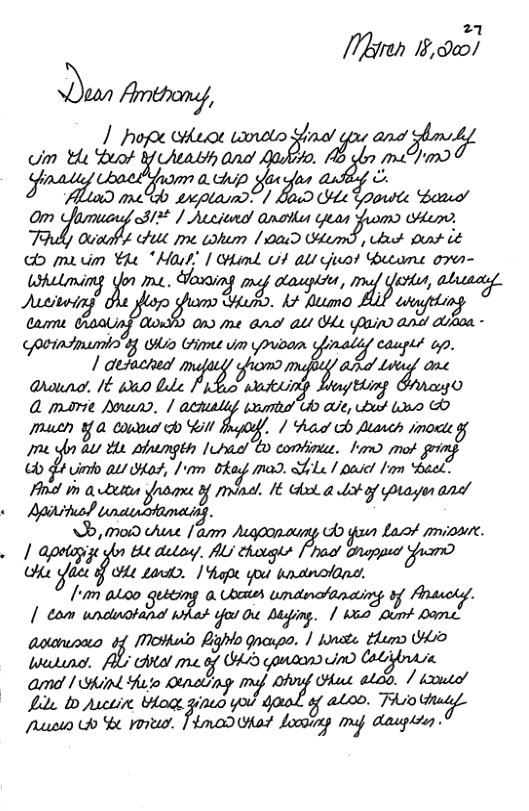 27
March 18, 2001
Dear Anthony,
I hope these words find you and family
in the best of health and spirits. As for me I'm
finally back from a trip far far away ü.
Allow me to explain. I saw the parole board
on January 31st I recieved another year from them.
They didn't tell me when I saw them, but sent it
to me in the "Mail". I think it all just became over-
whelming for me. Loosing my daughter, my father, already
recieving one flop from them. It seems like everything
came crashing down on me and all the pain and dissa-
pointments of this time in prison finally caught up.
I detached myself from myself and every one
around. It was like I was watching everything through
a movie screen. I actually wanted to die, but was to
much of a coward to kill myself. I had to search inside of
me for all the strength I had to continue. I'm not going
to get into all that, I'm okay now. Like I said I'm back.
And in a better frame of mind. It took a lot of prayer and
spiritual understanding.
So, now here I am responding to your last missive.
I apologize for the delay. Ali thought I had dropped from
the face of the earth. I hope you understand.
I'm also getting a better understanding of Anarchy.
I can understand what you are saying. I was sent some
addresses of Mother's Rights groups. I wrote them this
weekend. Ali told me of this person in California
and I think he's sending my story there also. I would
like to receive those zines you speak of also. This truly
needs to be voiced. I know that loosing my daughter.